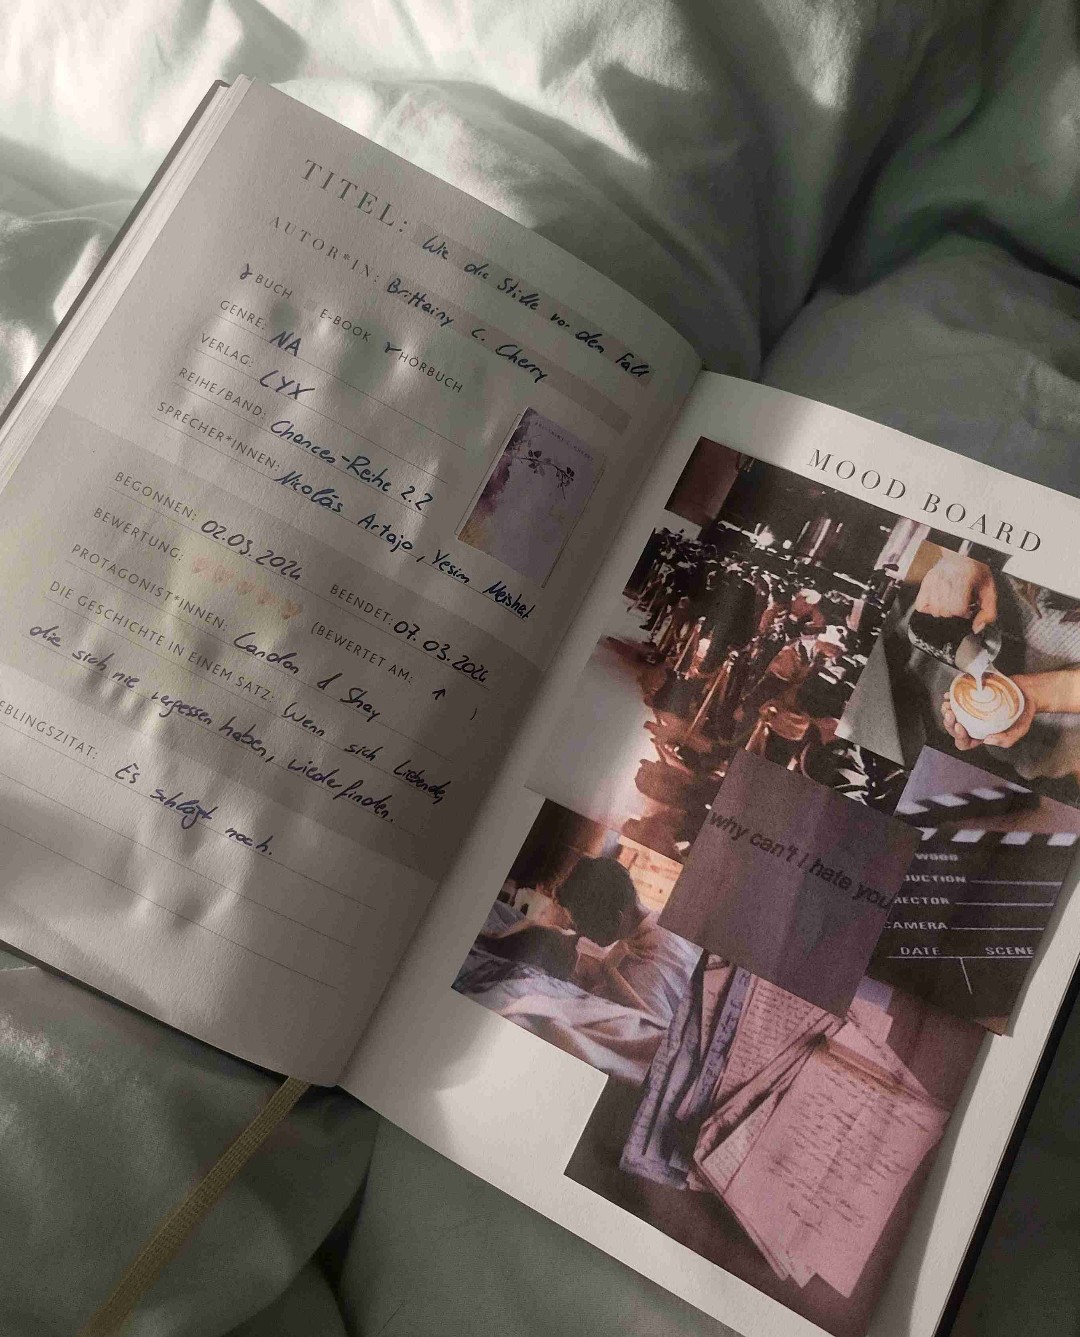 TITEL: Wie die Stille vor dem Fall
AUTOR*IN: Brittainy C. Cherry
BUCH E-BOOK HÖRBUCH
GENRE: NA
VERLAG: LYX
REIHE/BAND: Chances-Reihe 2.2
SPRECHER*INNEN: Nicolás Artajo, Yesim Meisheit
BEGONNEN: 02.03.2024 BEENDET: 07.03.2024
BEWERTUNG: (BEWERTET AM: ↑ )
PROTAGONIST*INNEN: Landon & Shay
DIE GESCHICHTE IN EINEM SATZ: Wenn sich Liebende,
die sich nie vergessen haben, wiederfinden.
EBLINGSZITAT: Es schlägt noch.
MOOD BOARD
why can't I hate you
DUCTION
RECTOR
CAMERA
DATE SCENE